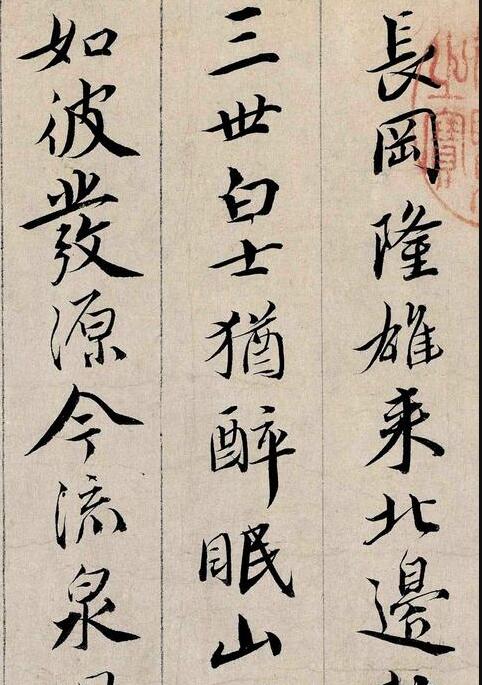 長岡隆雄來北邊
三世白士猶醉眠山
如彼發源今流泉